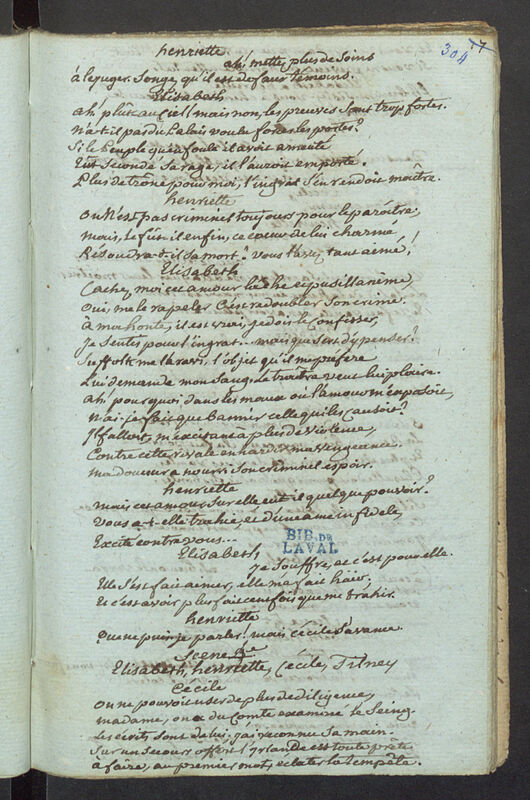 304 77
henriette
ah! mettez plus de soins
à le juger. Songez, qu'il est de faux témoins.
Elisabeth
ah! plût au ciel! mais non, les preuves sont trop fortes.
n'a t-il pas du Palais voulu forcer les portes?
Si le Peuple qu'en foule il avoit ameuté
Eût Secondé Sa rage, il l'auroit emporté.
Plus de trône pour moi, l'ingrat S'en rendoit maître.
henriette
on N'est pas criminel toujours pour le paroître,
mais, le fût-il enfin, ce coeur de lui charmé
Résoudra-t-il sa mort? vous l'avez tant aimé!
Elisabeth
Cachez moi cet amour lâche et pusillanime,
Oui, me le rapeler C'est redoubler Son crime.
à ma honte, il est vrai, je dois le confesser,
Je Sentis pour l'ingrat... mais que sert d'y penser?
Suffolk me l'a ravi, l'objet qu'il me préfère
Lui demande mon Sang. Le traître veut lui plaire.
ah! pourquoi dans les maux où l'amour m'exposoit,
n'ai-je fait que bannir celle qui les causoit?
Il falloit, m'excitant à plus de violence,
Contre cette rivale enhardir ma vengeance.
ma douceur a nourri Son criminel espoir.
henriette
mais cet amour Sur elle eut il quelque pouvoir?
Vous a-t-elle trahie, et d'une ame infidele,
Excité contre vous...
BIB. DE
LAVAL
Elisabeth
Je Souffre, et c'est pour elle.
Elle S'est fait aimer, elle m'a fait haïr,
Et c'est avoir plus fait cent fois que me trahir.
henriette
Que ne puis-je parler! mais Cécile S'avance.
Scene
Elisabeth, henriette, Cécile, Tilney
Cécile
on ne pouvoit user de plus de diligence,
madame, on a du Comte examiné le Seing.
Les écrits sont de lui, j'ai reconnu Sa main.
Sur un secours offert l'Irlande est toute prête
à faire, au premier mot, eclater la tempête.